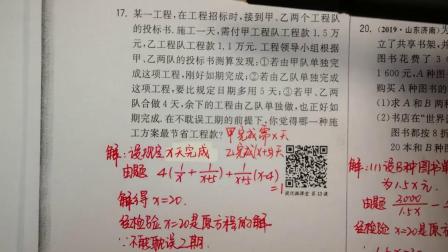 17. 某一工程,在工程招标时,接到甲、乙两个工程队
的投标书.施工一天,需付甲工程队工程款1.5万
元,乙工程队工程款1.1万元.工程领导小组根据
甲、乙两队的投标书测算发现:①若由甲队单独完
成这项工程,刚好如期完成;②若由乙队单独完成
这项工程,要比规定日期多用5天;③若甲、乙两
队合做4天,余下的工程由乙队单独做,也正好如
期完成.在不耽误工期的前提下,你觉得哪一种施
工方案最节省工程款?
甲完成需x天
解:设规定x天完成
乙完成(x+5)天
由题 4(1/x+1/(x+5))+1/(x+5)(x-4)
=1
解得x=20.
经检验x=20是原方程的解
∵不耽误工期.
第13课
20. (2019·山东济南)为
立了共享书架,并
图书花费了3
1600元,A种图
购买A种图书的
(1)求A和B两
(2)书店在"世界
图书都按8折
20本和B种
解:(1)设B种图书单
为1.5x元.
3000/1.5x -
经检验x=20是原